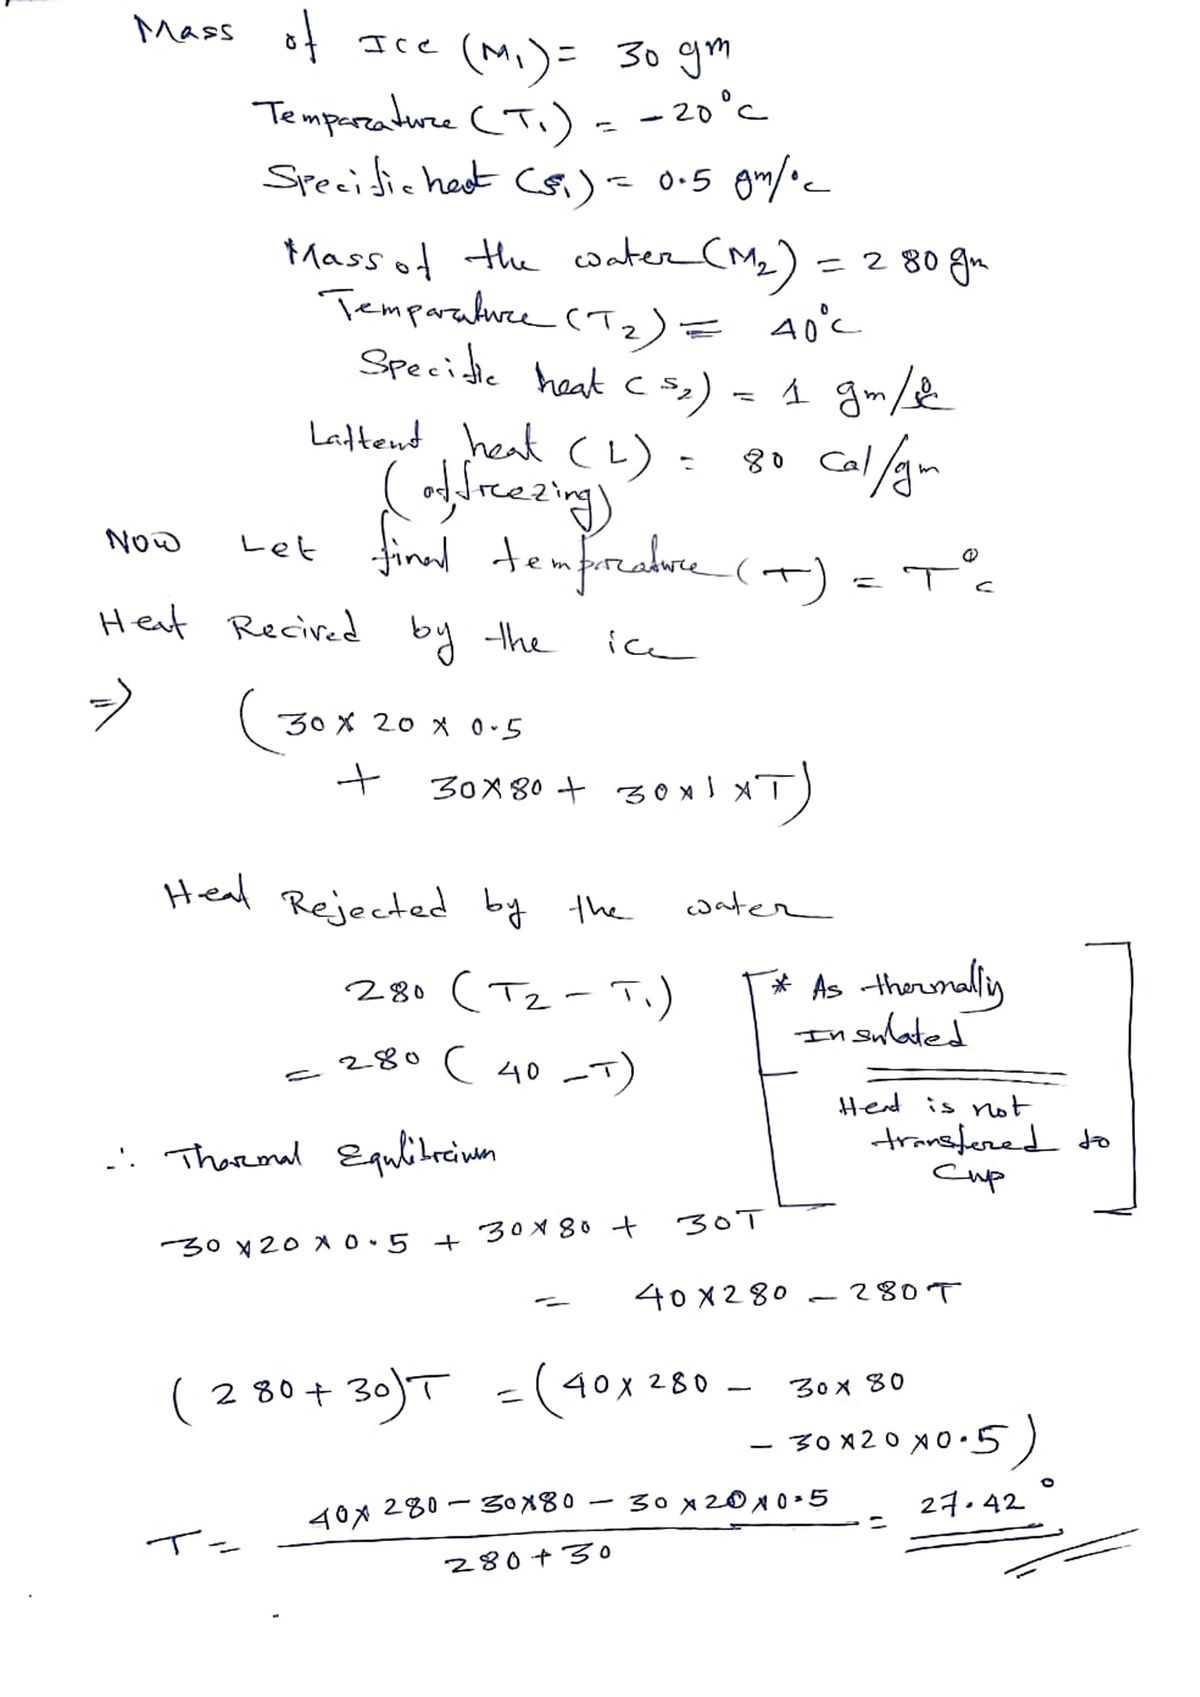 Mass of Ice (M₁) = 30 gm
Temparature (T₁) = -20°c
Specific heat (s₁) = 0.5 gm/°c
Mass of the water (M₂) = 280 gm
Temparature (T₂) = 40°c
Specific heat (s₂) = 1 gm/°c
Lattent heat (L) = 80 Cal/gm
(of freezing)
Now Let final temparature (T) = T°c
Heat Recived by the ice
⇒ (30 x 20 x 0.5
+ 30x80 + 30x1 xT)
Heat Rejected by the water
280 (T₂ - T₁)
= 280 ( 40 - T)
* As thermally
Insulated
Heat is not
transfered to
Cup
∴ Thermal Equlibrium
30 x 20 x 0.5 + 30x80 + 30T
= 40 x 280 - 280T
(280 + 30)T = (40x 280 - 30x 80
- 30x20x0.5)
T = 40x 280 - 30x80 - 30 x20x0.5 / 280 + 30 = 27.42°